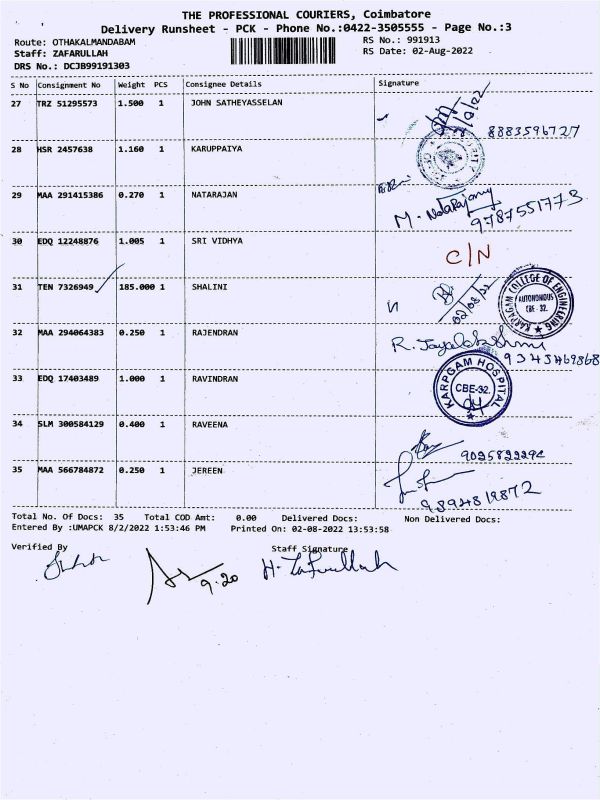 THE PROFESSIONAL COURIERS, Coimbatore
Delivery Runsheet - PCK - Phone No.:0422-3505555 - Page No.:3
Route: OTHAKALMANDABAM RS No.: 991913
Staff: ZAFARULLAH RS Date: 02-Aug-2022
DRS No.: DCJB99191303
S No Consignment No Weight PCS Consignee Details Signature
27 TRZ 51295573 1.500 1 JOHN SATHEYASSELAN
8883596727
28 HSR 2457638 1.160 1 KARUPPAIYA
29 MAA 291415386 0.270 1 NATARAJAN M. Natarajan
9787551773
30 EDQ 12248876 1.005 1 SRI VIDHYA C/N
31 TEN 7326949 185.000 1 SHALINI 02/08/22
KARPAGAM COLLEGE OF ENGINEERING
AUTONOMOUS
CBE - 32.
32 MAA 294064383 0.250 1 RAJENDRAN R. Jayalakshmi
33 EDQ 17403489 1.000 1 RAVINDRAN
KARPGAM HOSPITAL
CBE-32.
34 SLM 300584129 0.400 1 RAVEENA
9025822294
35 MAA 566784872 0.250 1 JEREEN
9894819872
Total No. Of Docs: 35 Total COD Amt: 0.00 Delivered Docs: Non Delivered Docs:
Entered By :UMAPCK 8/2/2022 1:53:46 PM Printed On: 02-08-2022 13:53:58
Verified By Staff Signature
9.20 H. Zafrullah